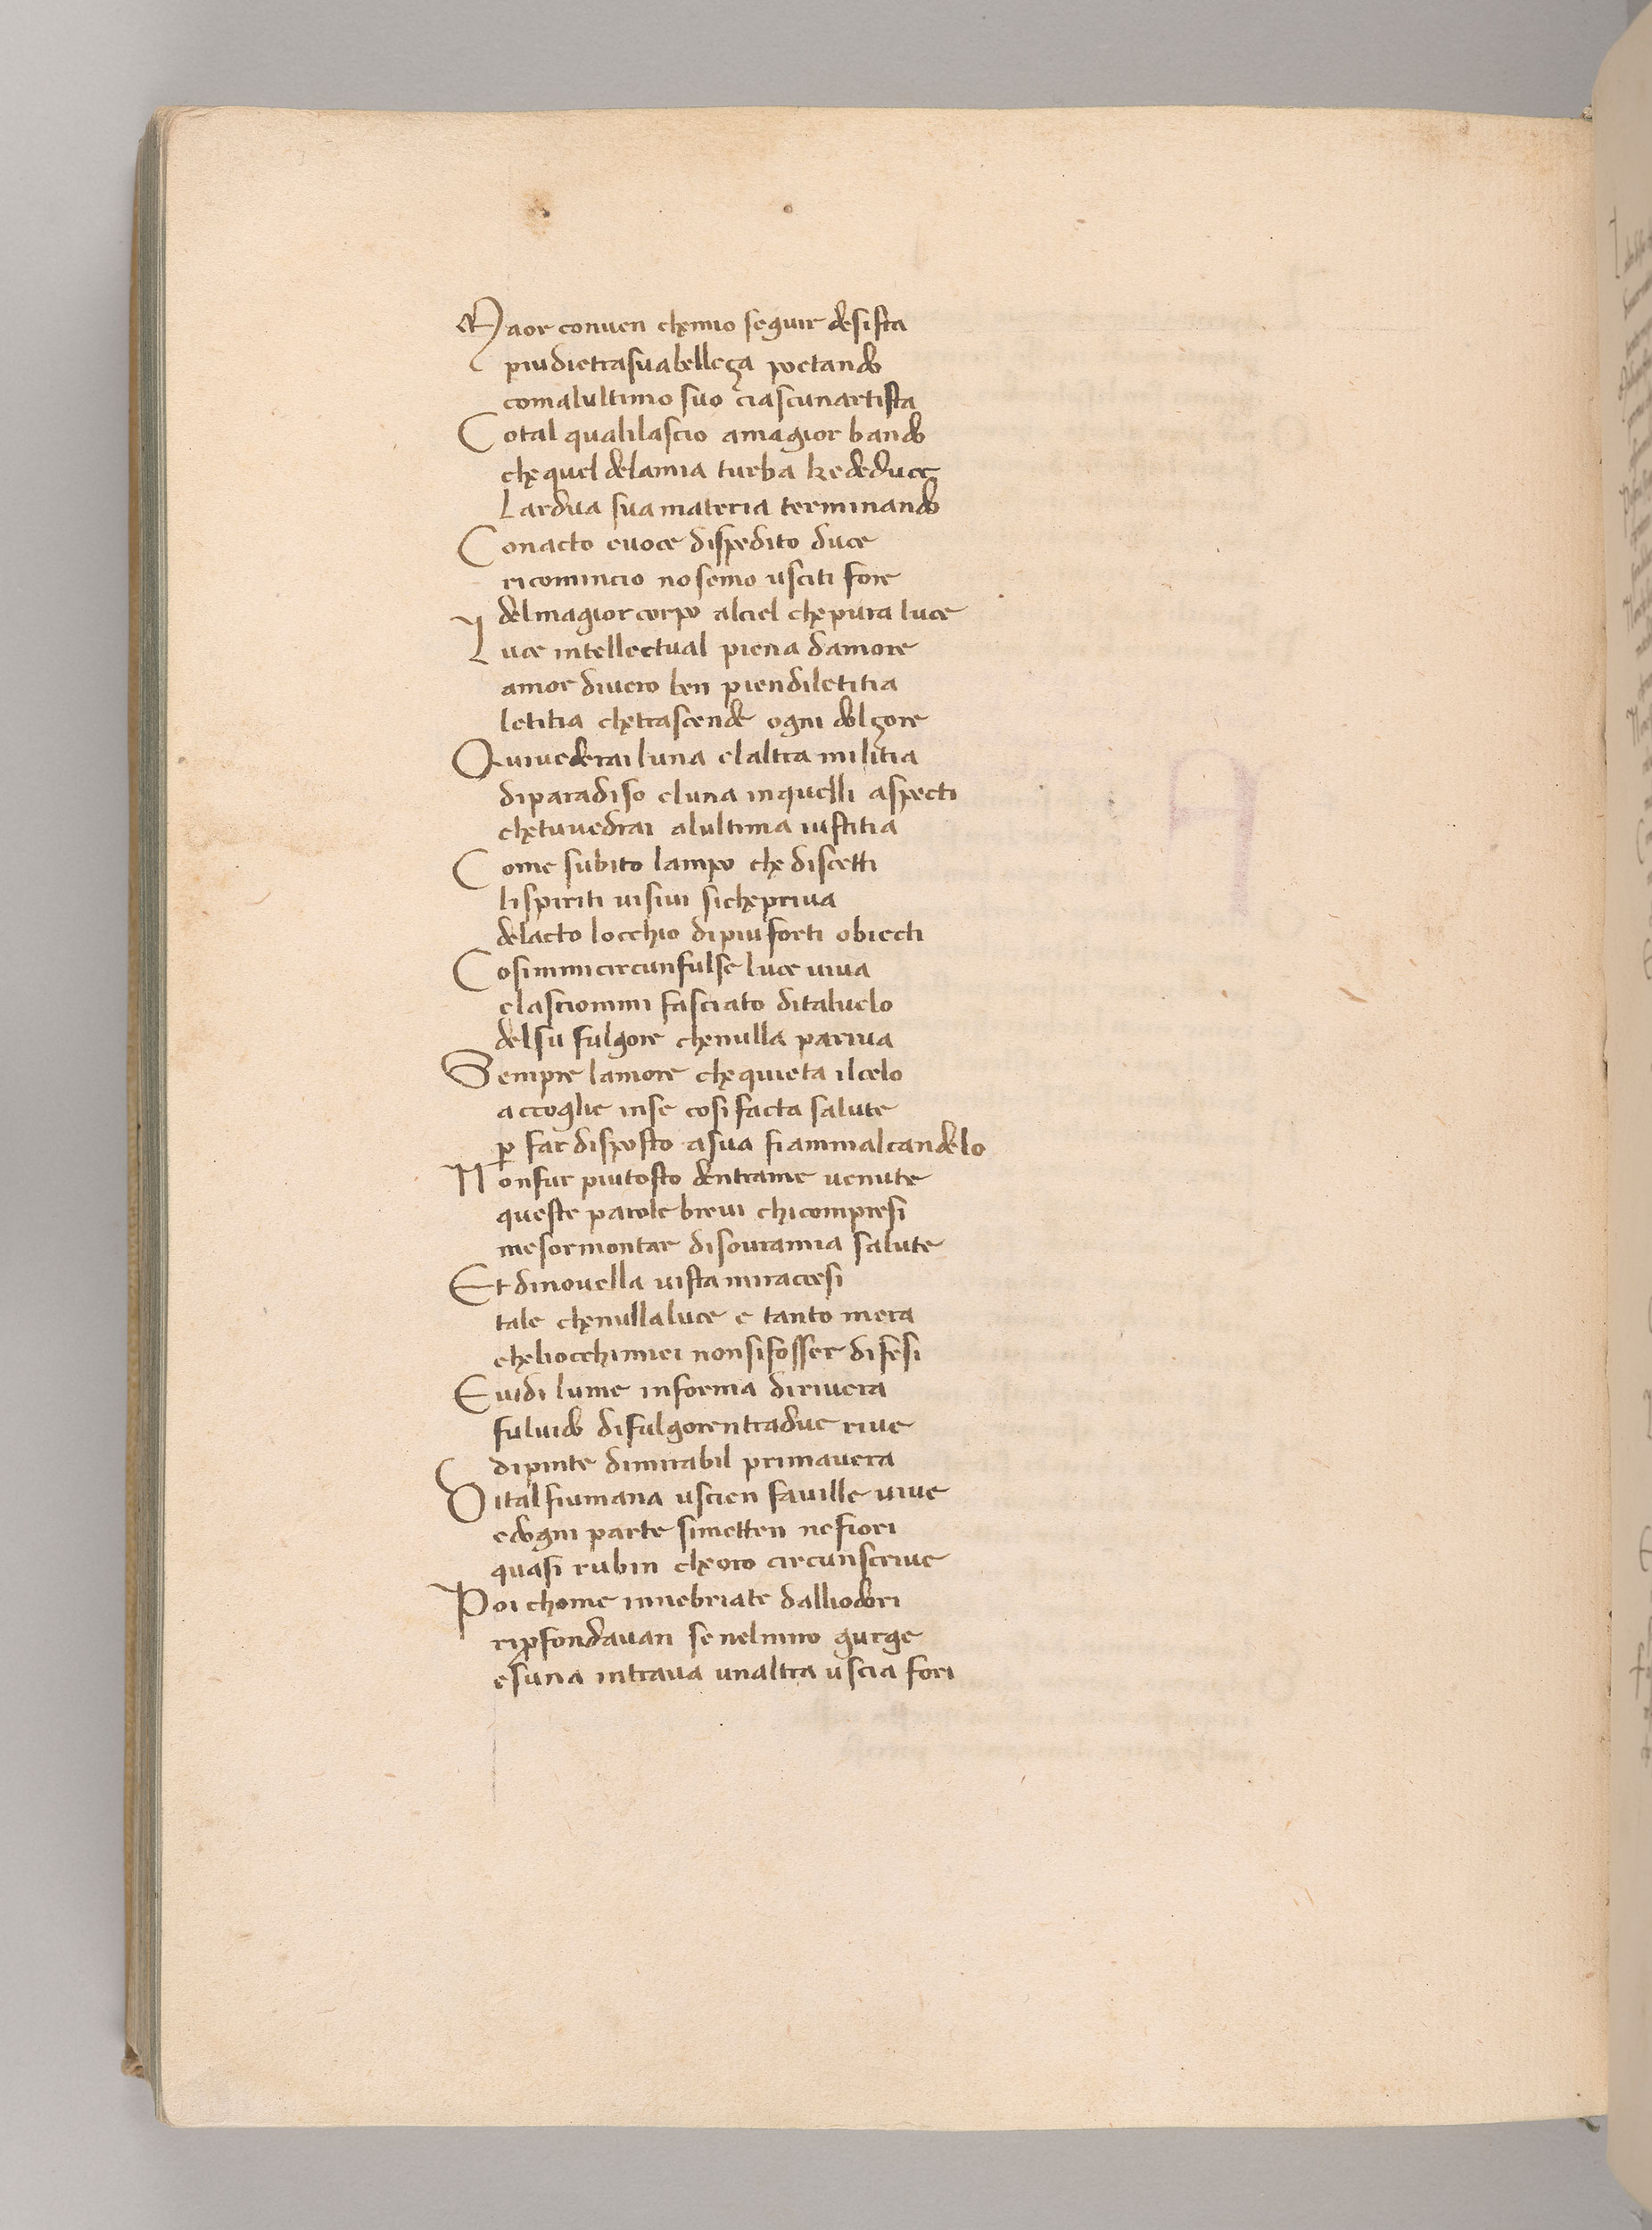 Maor conuen chemio seguir desista
piudietrasuabelleça poetando
comalultimo suo ciascunartista
Cotal qualilascio amagior bando
chequel delamia turba kededuce
Lardua suamateria terminando
Conacto euoce dispedito duce
ricomincio nosemo usciti fore
delmagiorcorpo alciel chepura luce
Luce intellectual piena damore
amor diuero ben piendiletitia
letitia chetrascende ogni dolçore
Quiuederailuna elaltra militia
diparadiso eluna inquelli aspecti
chetuuedrai alultima iustitia
Come subito lampo che discetti
lispiriti uisiui sichepriua
delacto locchio dipiuforti obiecti
Cosimmicircunfulse luce uiua
elasciommi fasciato ditaluelo
delsu fulgore chenulla pariua
Sempre lamore chequieta ilcelo
accoglie inse cosifacta salute
p far disposto asua fiammalcandelo
Nonfur piutosto dentrame uenute
queste parolebreui chicompresi
mesormontar disouramia salute
Et dinouella uistamiraccesi
tale chenullaluce e tanto mera
cheliocchimiei nonsifosser difesi
Euidi lume informa diriuera
fuluido difulgorentradue riue
dipinte dimirabil primauera
Di tal fiumana uscien fauille uiue
edogni parte simetten nefiori
quasi rubin cheoro circunscriue
Poi chome innebriate dalliodori
ripfondauan se nelmiro gurge
esuna intraua unaltra uscia fori